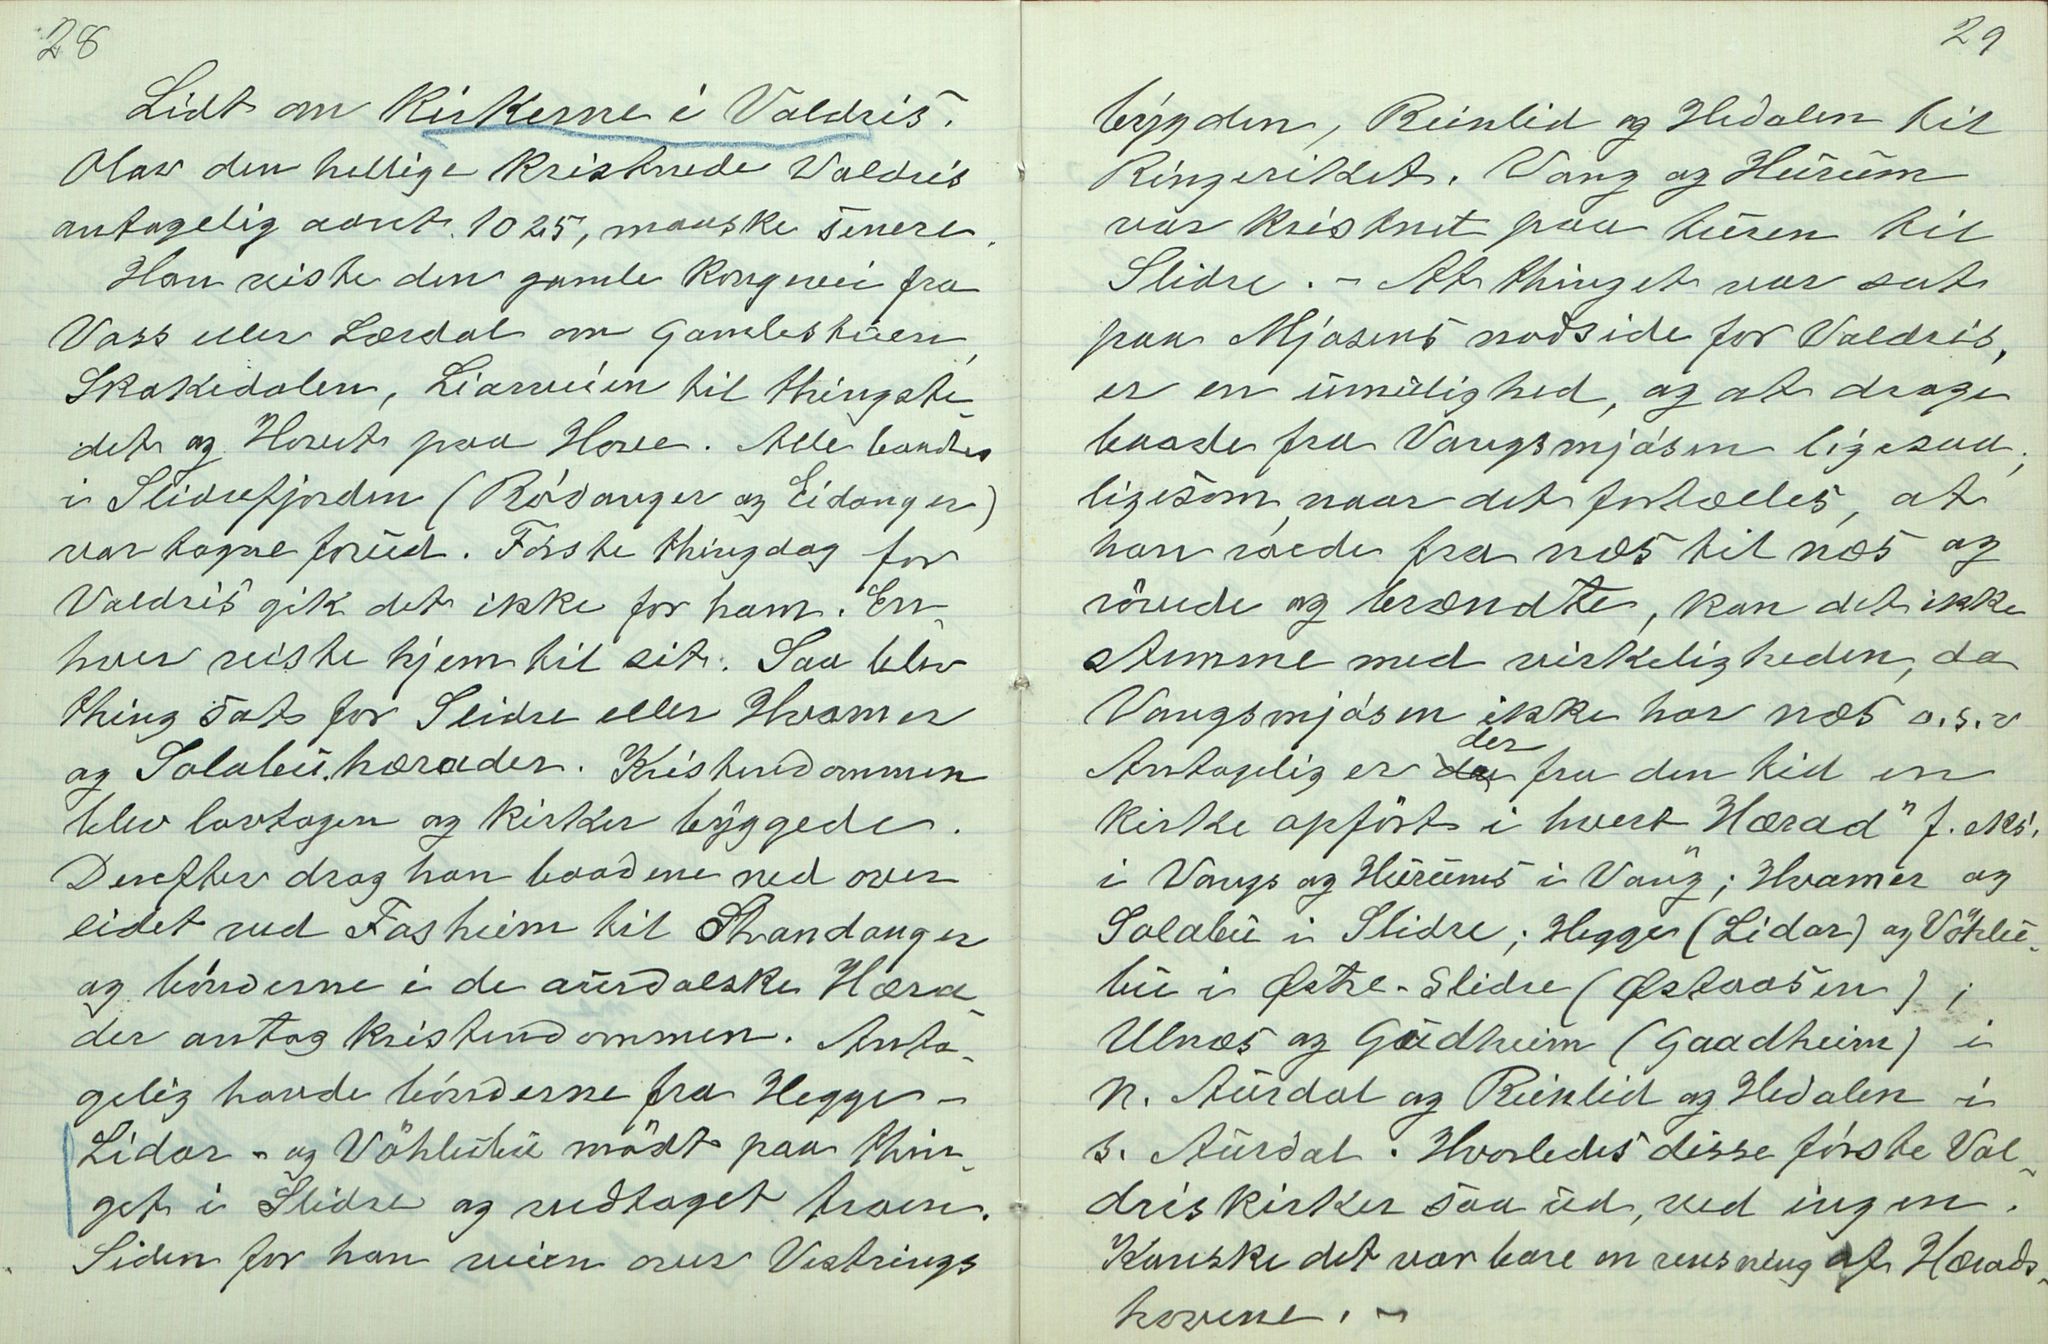 28
Lidt om Kirkerne i Valdris.
Olav den hellige kristnede Valdris
antagelig aaret 1025, maaske senere.
Han reiste den gamle kongevei fra
Voss eller Lærdal om Gamlestuen,
Skakedalen, Liarveien til thingste-
det og Hovet paa Hove. Alle baader
i Slidrefjorden (Rösanger og Eidanger)
var tagne forud. Förste thingdag for
Valdris gik det ikke for ham. En-
hver reiste hjem til sit. Saa blev
thing sat for Slidre eller Hvamer
og Solabu.herader. Kristendommen
blev lovtagen og kirker byggede.
Derefter drog han baadene ned over
eidet ved Fasheim til Strandanger
og bönderne i de aurdalske Hæra
der antog kristendommen. Anta-
gelig havde bönderne fra Hegge-
Lidar - og Vöhlubu mödt paa thin-
get i Slidre og vedtaget troen.
Siden for han veien over Vestrings
29
bygden, Reinlid og Hedalen til
Ringeriket. Vang og Hurum
var kristnet paa turen til
Slidre. - At thinget var sat
paa Mjøsens nordside for Valdris,
er en umulighed, og at drage
baade fra Vangsmjösen ligesaa;
ligesom, naar det fortælles, at
han roede fra næs til næs og
rövede og brændte, kan det ikke
stemme med virkeligheden, da
Vangsmjösen ikke har næs o.s.v
Antagelig er der fra den tid en
kirke opfört i hvert Hærad" f. eks.
i Vangs og Hurums i Vang; Hvamer og
Solabu i Slidre; Hegge (Lidar) og Vöhlu-
bu i Østre-Slidre (Østaasen);
Ulnæs og Gudheim (Gaadheim) i
N. Aurdal og Reinlid og Hedalen i
S. Aurdal. Hvorledes disse förste Val-
driskirker saa ud, ved ingen.
Kanske det var bare en rensning af Hærads-
hovene. -